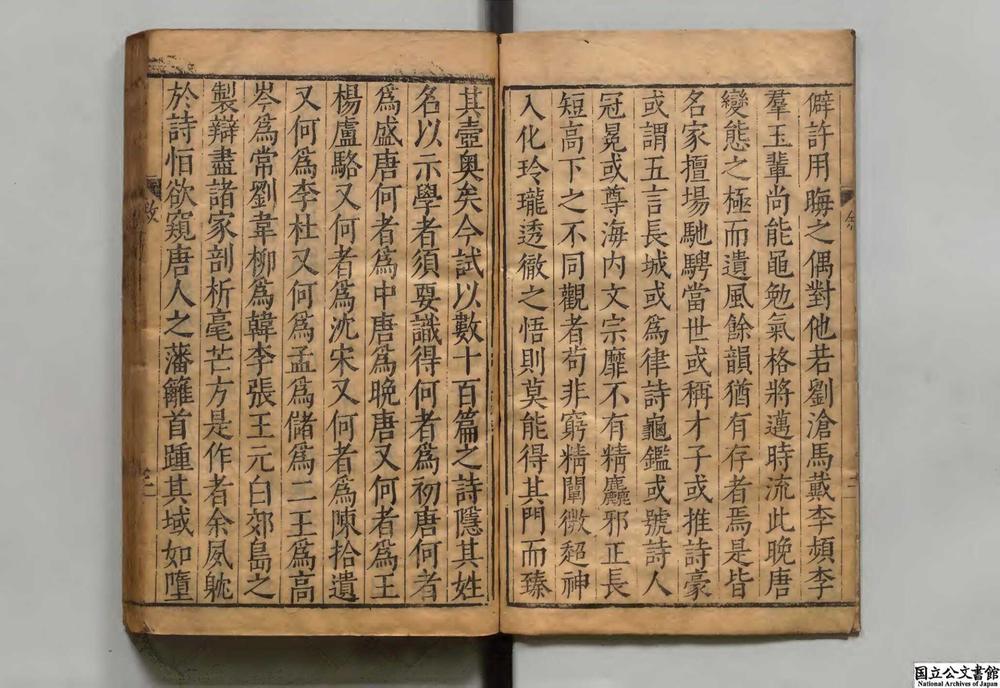 僻許用晦之偶對他若劉滄馬戴李頻李
羣玉輩尚能黽勉氣格將邁時流此晚唐
變態之極而遺風餘韻猶有存者焉是皆
名家擅場馳騁當世或稱才子或推詩豪
或謂五言長城或爲律詩龜鑑或號詩人
冠冕或尊海内文宗靡不有精麤邪正長
短高下之不同觀者苟非窮精闡微超神
入化玲瓏透徹之悟則莫能得其門而臻
其壼奥矣今試以數十百篇之詩隱其姓
名以示學者須要識得何者爲初唐何者
爲盛唐何者爲中唐爲晚唐又何者爲王
楊盧駱又何者爲沈宋又何者爲陳拾遺
又何爲李杜又何爲孟爲儲爲二王爲高
岑爲常劉韋柳爲韓李張王元白郊島之
製辯盡諸家剖析毫芒方是作者余夙躭
於詩怕欲窺唐人之藩籬首踵其域如墮
国立公文書館
National Archives of Japan